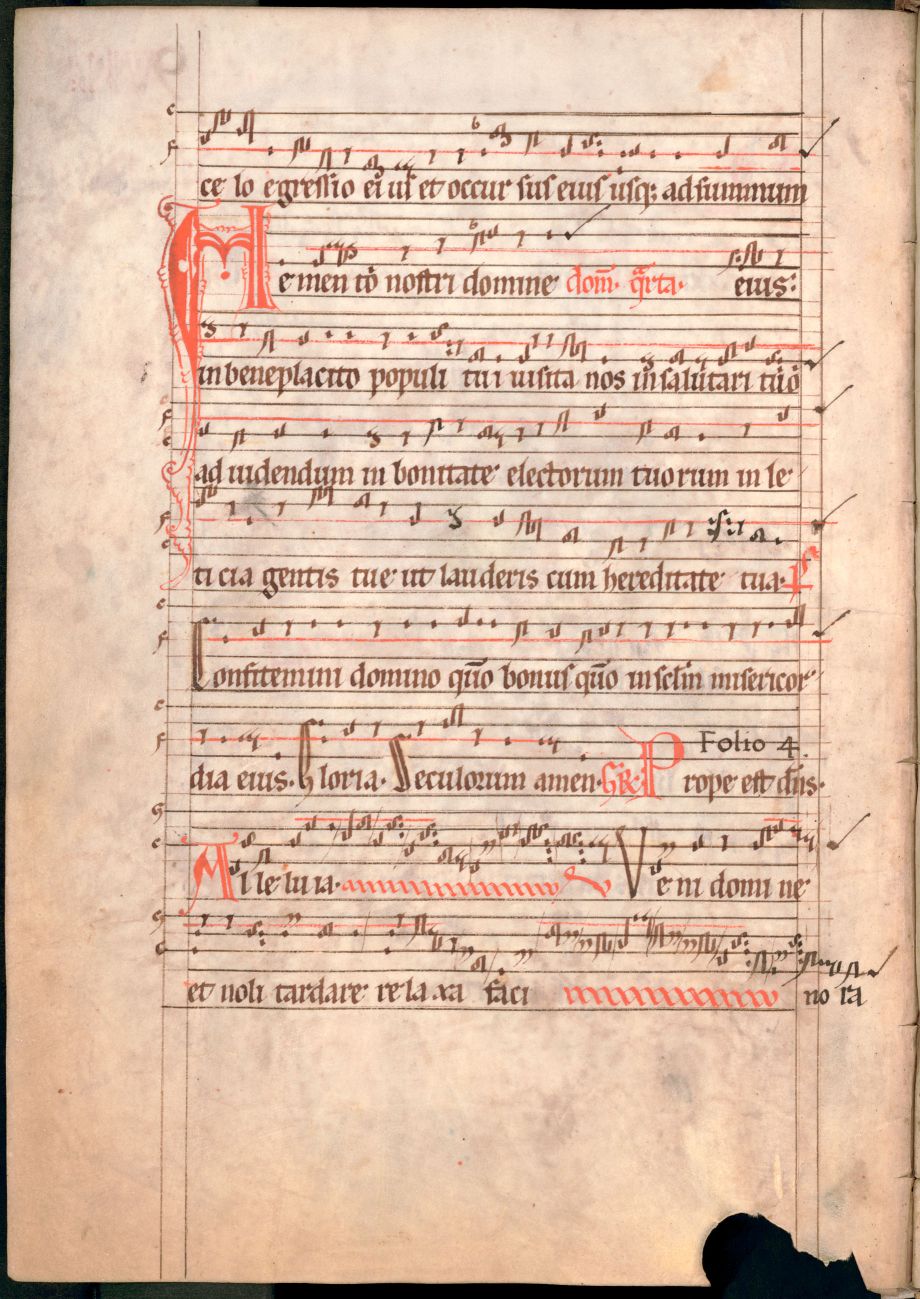 ce lo egressio ei us et occur sus eius usq; ad summum
Me men to nostri domine dom̄. qrta. eius:
in beneplacito populi tui uisita nos in salutari tuo
ad uidendum in bonitate electorum tuorum in le
ti cia gentis tue ut lauderis cum hereditate tua. P
Confitemini domino qūo bonus qūo in sclm̄ misericor
dia eius. Gloria. Seculorum amen. GR. Folio 4. Prope est dn̄s.
Al le lu ia. V Ve ni domi ne
et noli tardare re la xa faci no ra